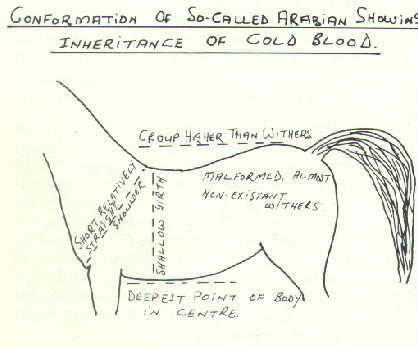 CONFORMATION OF SO-CALLED ARABIAN SHOWING
INHERITANCE OF COLD BLOOD.
CROUP HIGHER THAN WITHERS
MALFORMED, ALMOST
NON-EXISTANT
WITHERS
SHORT, RELATIVELY
STRAIGHT
SHOULDER
SHALLOW GIRTH
DEEPEST POINT OF BODY
IN CENTRE.